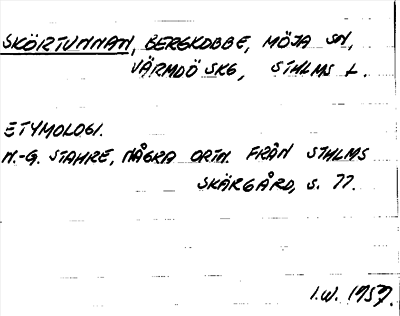 SKÖRTUNNAN, BERGKOBBE, MÖJA SN,
VÄRMDÖ SKG, STHLMS L.
ETYMOLOGI.
N.-G. STAHRE, NÅGRA ORTN. FRÅN STHLMS
SKÄRGÅRD, S. 77.
I.W. 1957.